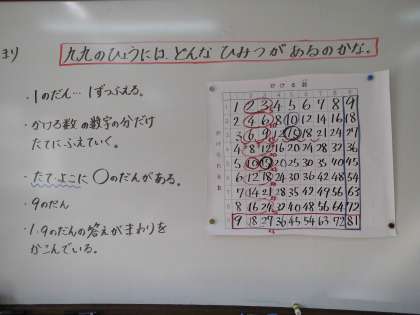 まり
九九のひょうには、どんな ひみつが あるのかな。
・1のだん…1ずつふえる。
・かける数の数字の分だけ
たてにふえていく。
・たて、よこに〇のだんがある。
・9のだん
・1、9のだんの答えがまわりを
かこんでいる。
かける数
かけられる数
1 2 3 4 5 6 7 8 9
2 4 6 8 10 12 14 16 18
3 6 9 12 15 18 21 24 27
4 8 12 16 20 24 28 32 36
5 10 15 20 25 30 35 40 45
6 12 18 24 30 36 42 48 54
7 14 21 28 35 42 49 56 63
8 16 24 32 40 48 56 64 72
9 18 27 36 45 54 63 72 81